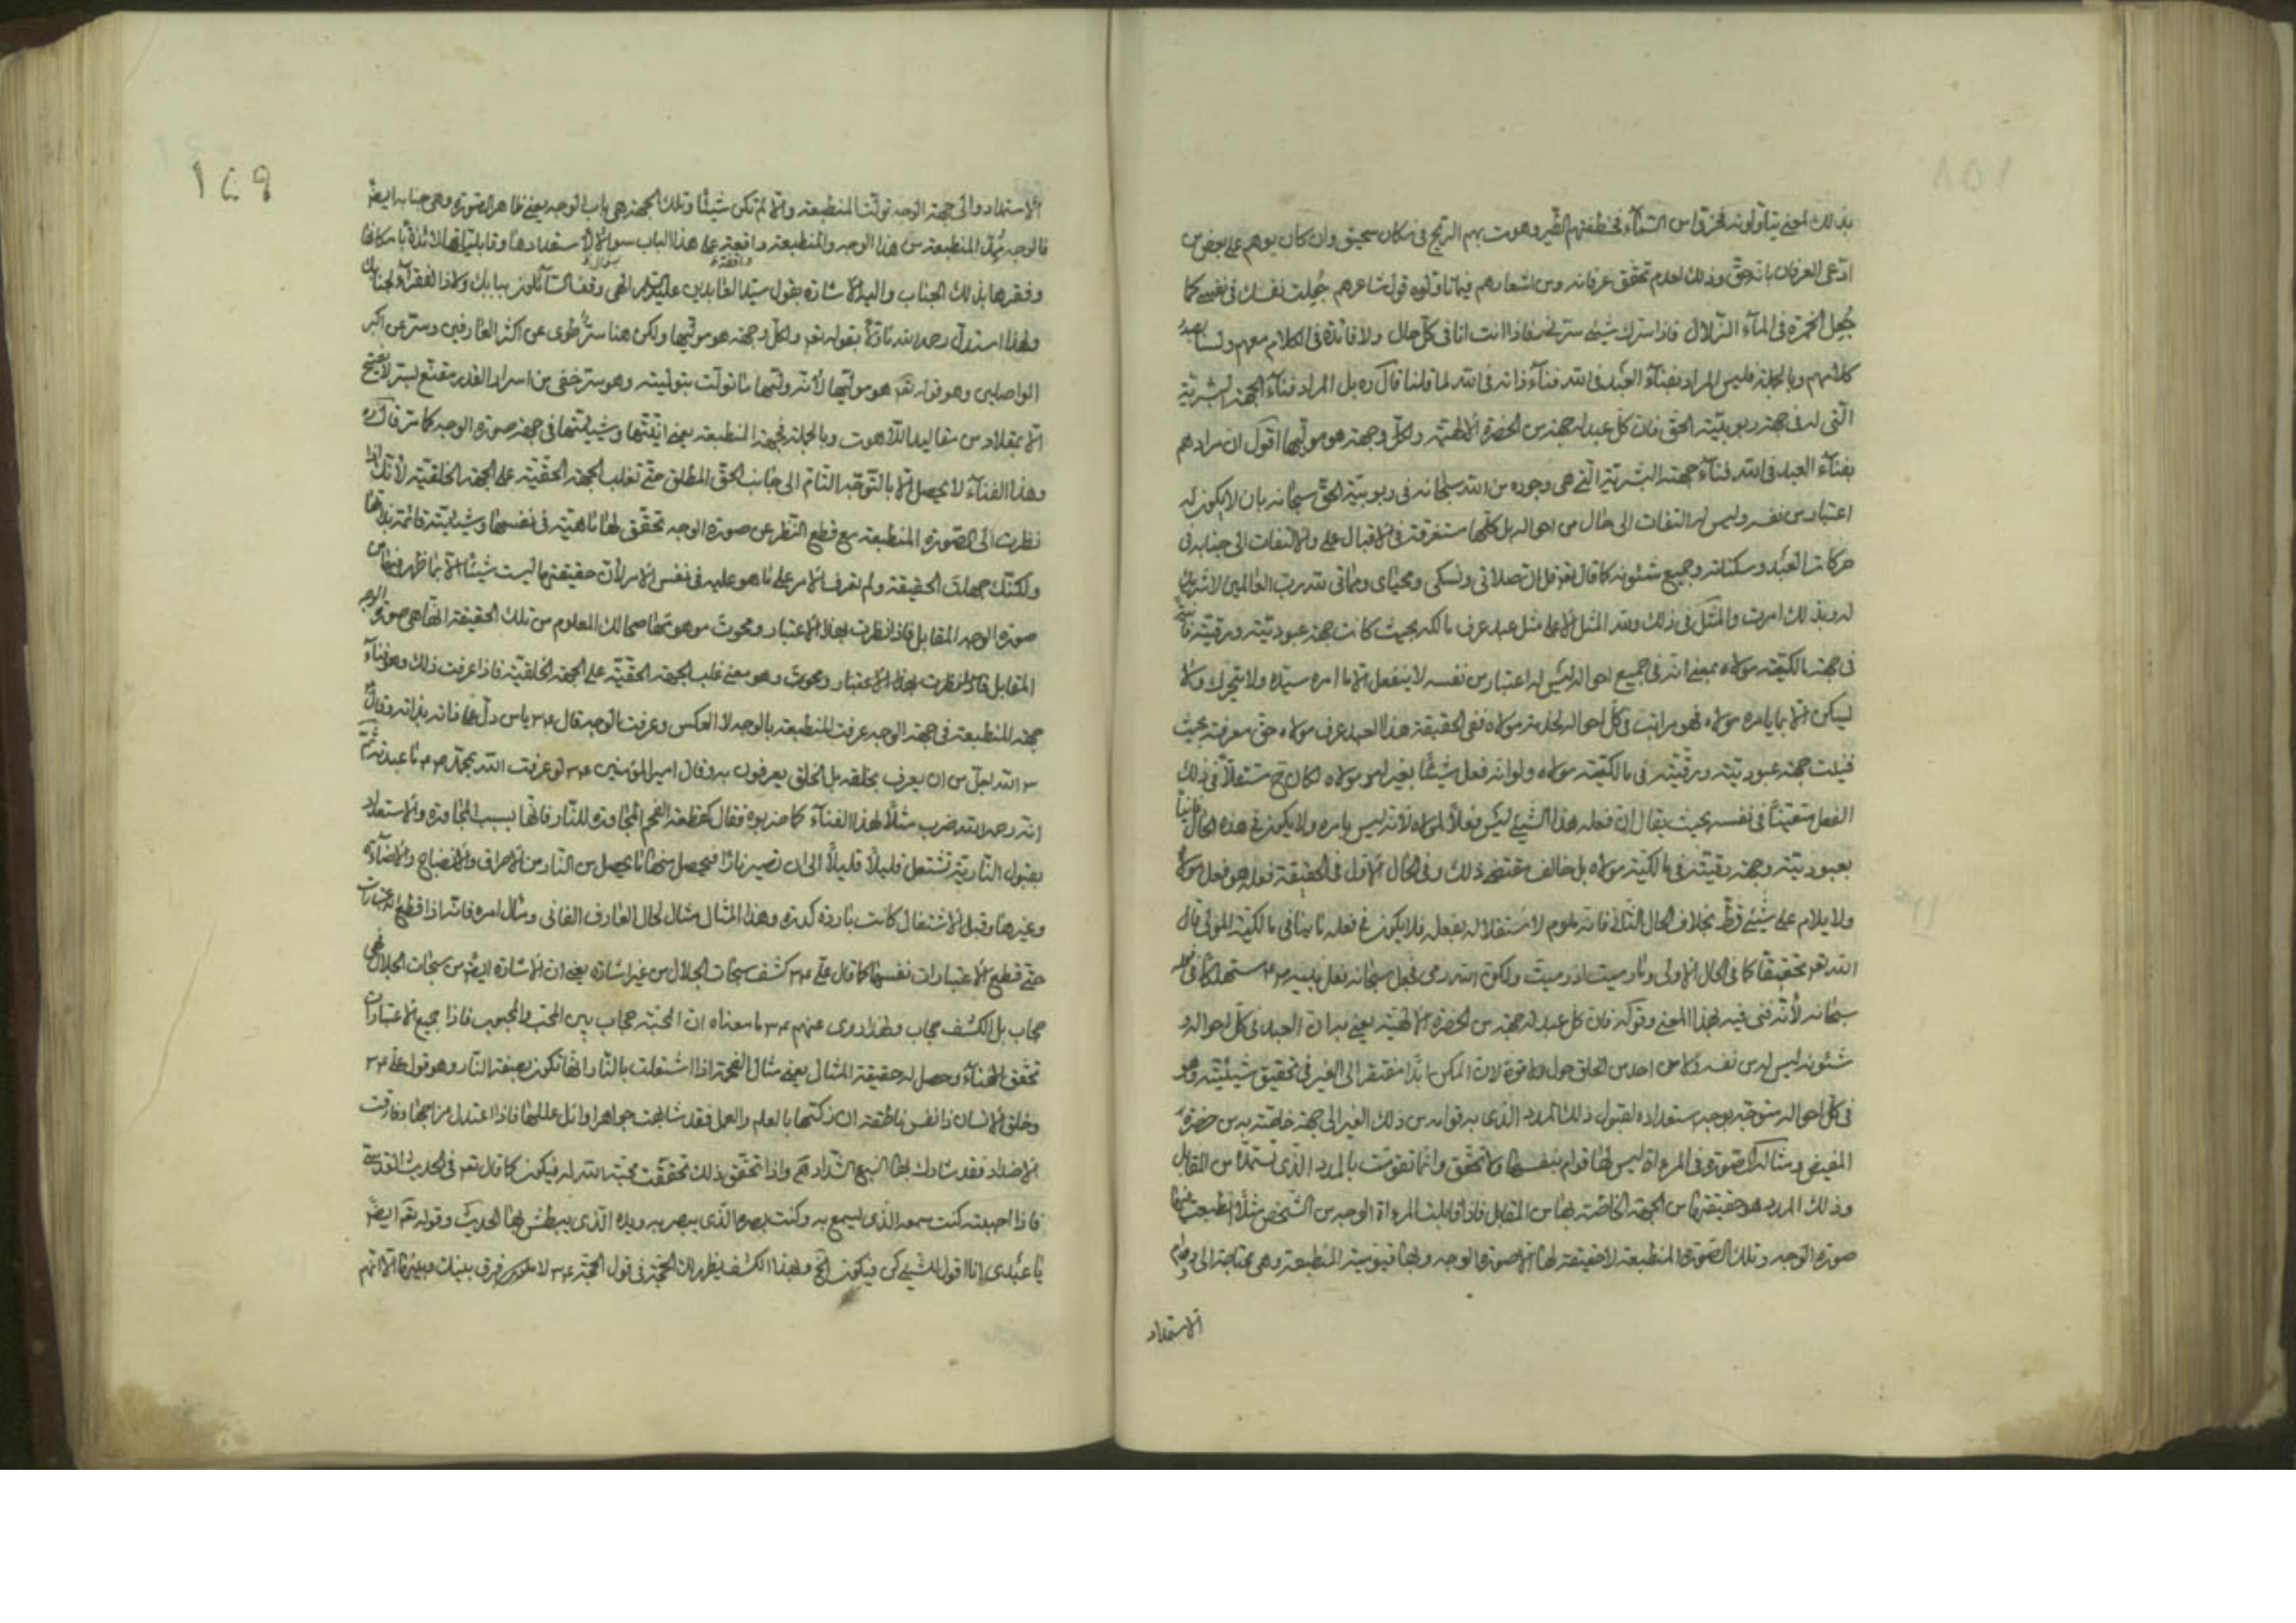 بذلك المعنى يتأولونه فخروا من السماء فتخطفهم الطير وهوت بهم الريح في مكان سحيق وان كان يوهم على بعض من
ادعى العرفان بانه حق وذلك لعدم تحقق عرفانه ومن اشعارهم فيما تأولوه قول شاعرهم جُبلت نفسك في نفسي كما
جُعل الخمرة في الماء الزلال فاذا سرك شيء سرني فاذا انت انا في كل حال ولا فائدة في الكلام معهم ولسنا بصدد
كلامهم وبالجملة فليس المراد بفناء العبد في الله فناء ذاته في الله لما قلنا قال ره بل المراد فناء الجهة البشرية
التي له في جهة ربوبية الحق فان كل عبد له جهة من الحضرة الالهية ولكل وجهة هو موليها اقول ان مرادهم
بفناء العبد في الله فناء جهته البشرية التي هي وجوده من الله سبحانه في ربوبية الحق سبحانه بان لا يكون له
اعتبار من نفسه وليس له التفات الى حال من احواله بل كلها مستغرقة في الاقبال عليه والالتفات الى جنابه في
حركات العبد وسكناته وجميع شئونه كما قال تع قل ان صلاتي ونسكي ومحياي ومماتي لله رب العالمين لا شريك
له وبذلك امرت والمثل في ذلك ولله المثل الاعلى مثل عبد عرف مالكه بحيث كانت جهة عبوديته ورقيته فانية
في جهة مالكية مولاه بمعنى انه في جميع احواله ليس له اعتبار من نفسه لا ينفعل الا ما امره سيده ولا يتحرك ولا
يسكن الا بما يأمره مولاه فهو مراتب في كل احواله لخدمة مولاه ففي الحقيقة هذا العبد عرف مولاه حق معرفته بحيث
فنيت جهة عبوديته ورقيته في مالكية مولاه ولو انه فعل شيئا بغير امر مولاه لكان ح مستقلا في ذلك
الفعل متعينا في نفسه بحيث يقال ان فعله هذا الشيء ليس فعلا لمولاه لانه ليس بامره ولا يكون في هذه الحال فانيا
بعبوديته وجهة رقيته في مالكية مولاه بل خالف مقتضى ذلك وفي الحال الاول في الحقيقة فعله هو فعل مولاه
ولا يلام على شيء قط بخلاف الحال الثاني فانه ملوم لاستقلاله بفعله فلا يكون ح فعله فانيا في مالكية المولى قال
الله تع تحقيقا كما في الحال الاولى وما رميت اذ رميت ولكن الله رمى فجعل سبحانه فعل نبيه ص مستهلكا في فعله
سبحانه لأنه فني فيه بهذا المعنى وقوله فان كل عبد له جهة من الحضرة الالهية يعني به ان العبد في كل احواله و
شئونه ليس له من نفسه ولا من احد من الخلق حول ولا قوة لان الممكن ابدا مفتقر الى الغير في تحقيق شيئيته وهو
في كل احواله متوجه بوجه استعداده لقبول ذلك المدد الذي به قوامه من ذلك الغير الى جهة خاصة به من حضرة
المفيض ومثال ذلك الصورة في المرءاة ليس لها قوام بنفسها ولا تحقق وانما تقومت بالمدد الذي تستمده من المقابل
وذلك المدد هو حقيقتها من الجهة الخاصة بها من المقابل فاذا قابلت المرءاة الوجه من الشخص مثلا انطبعت فيها
صورة الوجه وتلك الصورة المنطبعة لا حقيقة لها الا صورة الوجه وبها قيومية المنطبعة وهي محتاجة الى دوام
الاستمداد
١٤٩
الاستمداد والى جهة الوجه تولت المنطبعة والا لم تكن شيئا وتلك الجهة هي باب الوجه يعني ظاهر الصورة وهي جنابه ايضا
فالوجه يمد المنطبعة من هذا الوجه والمنطبعة واقفة على هذا الباب سؤال استعدادها وقابليتها لائذة بامكانها
وفقرها بذلك الجناب واليه الاشارة بقول سيد العابدين عليه السلام الهي وقف السائلون ببابك ولاذ الفقراء بجنابك
ولهذا استدل رحمه الله تارة بقوله تع ولكل وجهة هو موليها ولكن هنا سر خفي عن اكثر العارفين وستر عن اكبر
الواصلين وهو قوله تع هو موليها لأنه ولّيها ما تولت بتوليته وهو سر خفي من اسرار القدر مقنع بستر لا يفتح
الا بمقلاد من مقاليد اللاهوت وبالجملة فجهة المنطبعة يعني انيتها وشيئيتها في جهة صورة الوجه كما مر قال ره
وهذا الفناء لا يحصل الا بالتوجه التام الى جناب الحق المطلق حتى تغلب الجهة الحقية على الجهة الخلقية لأنك اذا
نظرت الى الصورة المنطبعة مع قطع النظر عن صورة الوجه تحقق لها ماهية في نفسها وشيئية قائمة بذاتها
ولكنك جهلت الحقيقة ولم تعرف الامر على ما هو عليه في نفس الامر لأن حقيقتها ليست شيئا الا بما ظهر فيها من
صورة الوجه المقابل فاذا نظرت بهذا الاعتبار ومحوت موهومها صحا لك المعلوم من تلك الحقيقة انها هي صورة الوجه
المقابل فاذا نظرت بهذا الاعتبار ومحوت وهو معنى غلب الجهة الحقية على الجهة الخلقية فاذا عرفت ذلك وهو فناء
جهة المنطبعة في جهة الوجه عرفت المنطبعة بالوجه لا العكس وعرفت بالوجه قال ع يا من دل على ذاته بذاته وقال
ان الله اجل من ان يعرف بخلقه بل الخلق يعرفون به وقال امير المؤمنين ع لو عرفت الله بمحمد ص ما عبدته ثم
انه رحمه الله ضرب مثلا لهذا الفناء كما ضربوه فقال كقطعة الفحم المجاورة للنار فانها بسبب المجاورة والاستعداد
بقبول النارية تشتعل قليلا قليلا الى ان تصير نارا فيحصل منها ما يحصل من النار من الاحراق والانضاج والاضاءة
وغيرها وقبل الاشتعال كانت باردة كدرة وهذا المثال مثال لحال العارف الفاني ومثال امره فانه اذا قطع الاعتبارات
حتى قطع الاعتبارات نفسها كما قال علي ع كشف سبحات الجلال من غير اشارة يعني ان الاشارة ايضا من سبحات الجلال فهي
حجاب بل الكشف حجاب ولهذا روى عنهم ع ما معناه ان المحبة حجاب بين المحب والمحبوب فاذا جميع الاعتبارات
تحقق الفناء وحصل له حقيقة المثال يعني مثال الفحمة اذا اشتعلت بالنار انها تكون بصفة النار وهو قول علي ع
وخلق الانسان ذا نفس ناطقة ان زكيها بالعلم والعمل فقد شابهت جواهر اوائل عللها فاذا اعتدل مزاجها وفارقت
الاضداد فقد شارك بها السبع الشداد واذا تحقق ذلك تحققت محبة الله له فيكون كما قال تع في الحديث القدسي
فاذا احببته كنت سمعه الذي يسمع به وكنت بصره الذي يبصر به ويده الذي يبطش بها الحديث وقوله تع ايضا
يا عبدي انا اقول للشيء كن فيكون الخ وبهذا الكشف يظهر لك الحجة في قول الحجة ع لا فرق بينك وبينها الا انهم